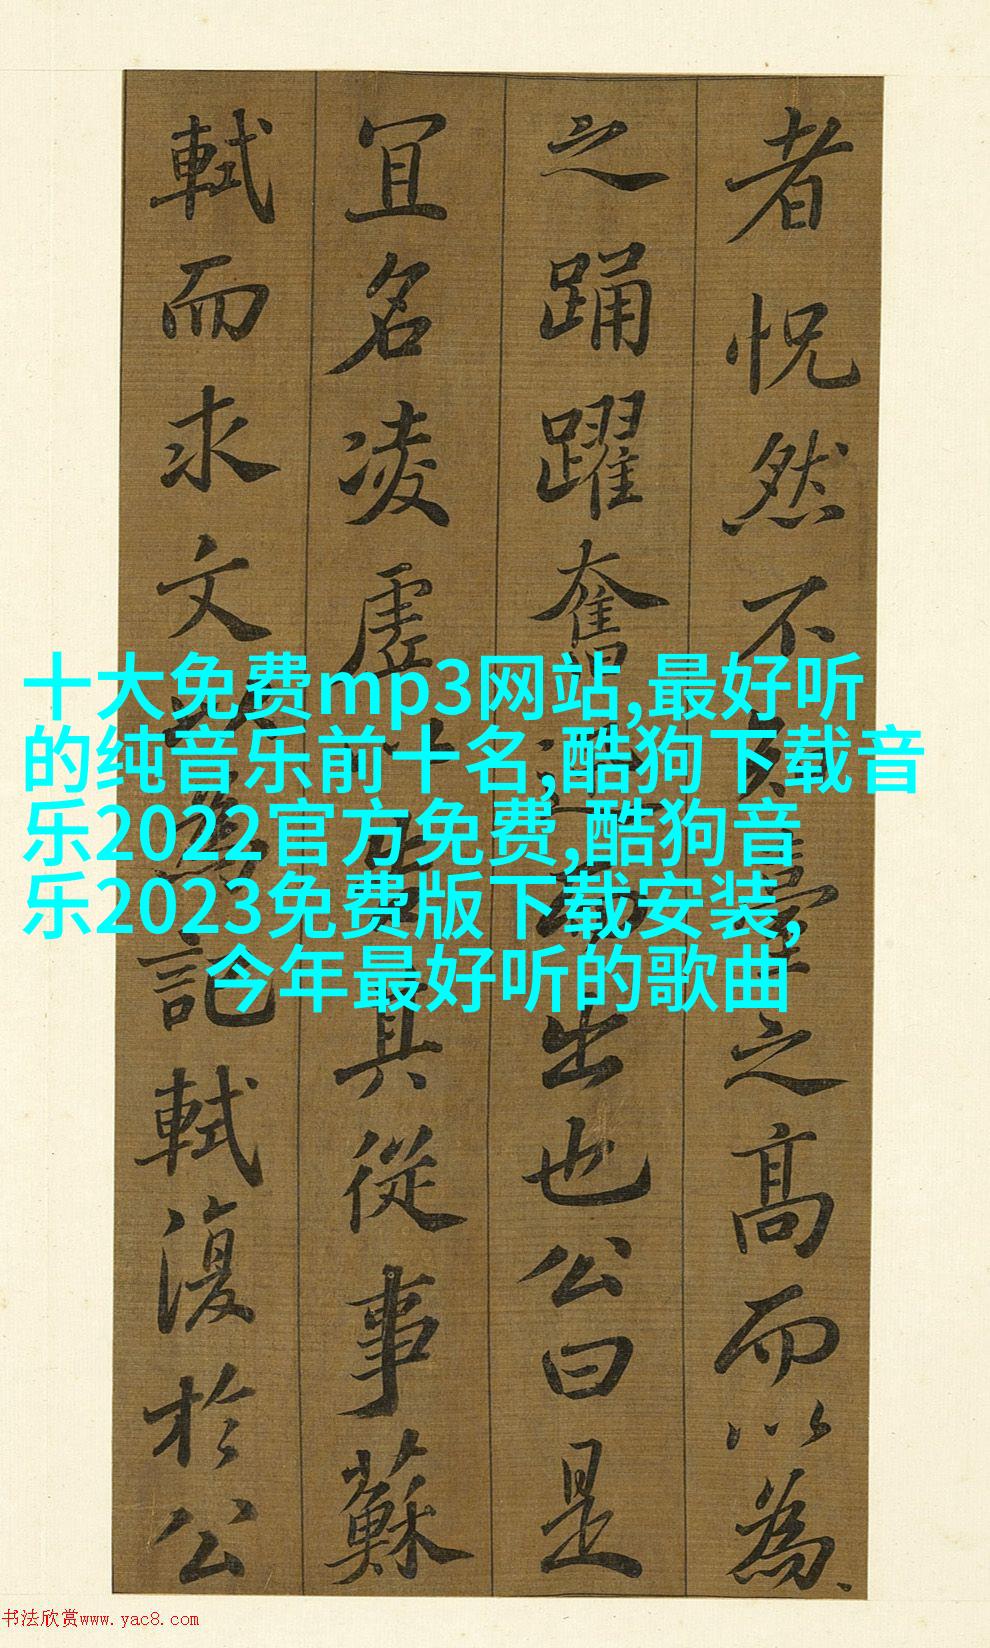 十大免费mp3网站,最好听
的纯音乐前十名,酷狗下载音
乐2022官方免费,酷狗音
乐2023免费版下载安装,
今年最好听的歌曲
者怳然不知臺之髙而以為
之踊躍奮迅而出也公曰是
冝名凌虛以告其從事蘇
軾而求文以為記軾復於公
书法欣赏www.yac8.com